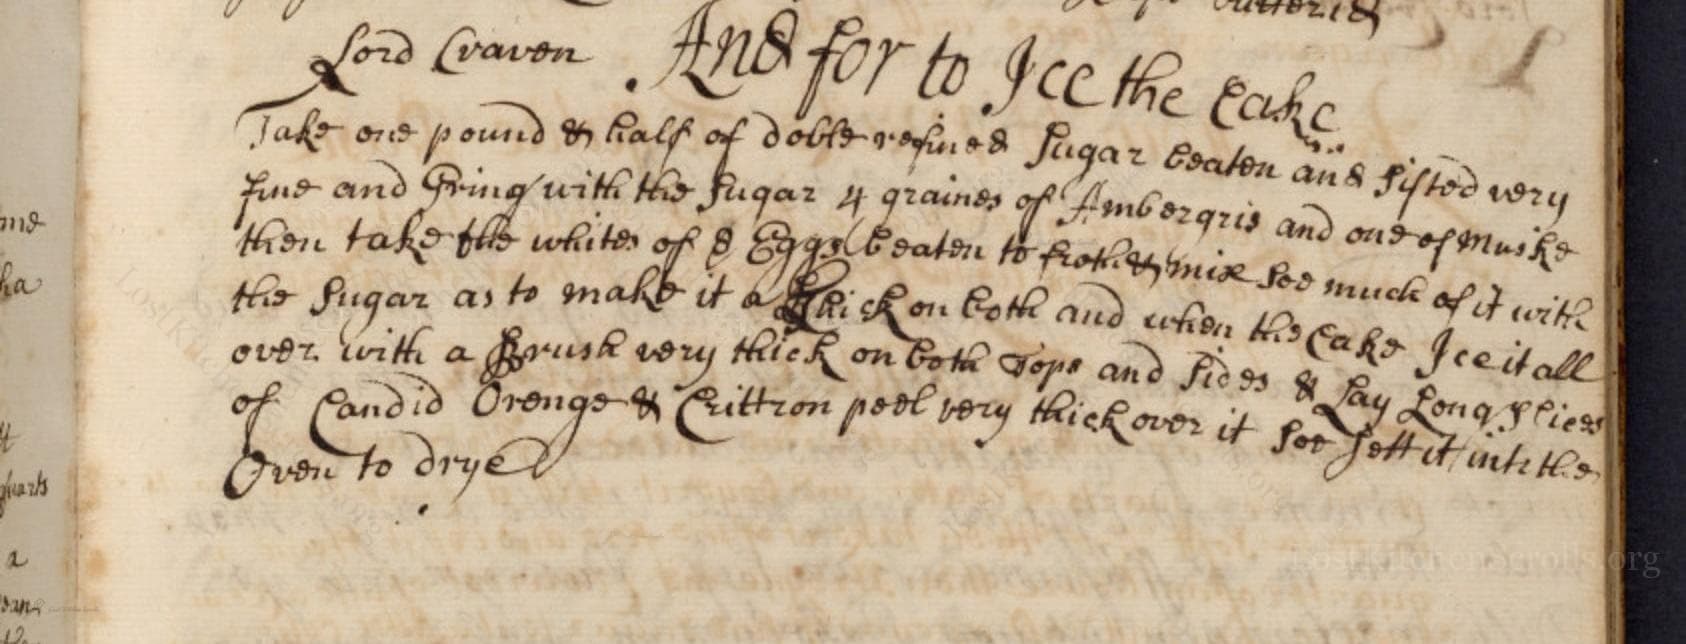 buttered
Lord Craven . And for to Ice the Cake
Take one pound & half of doble refined Sugar beaten and sifted very
fine and Gring with the Sugar 4 graines of Ambergris and one of Muske
then take the whites of 8 Eggs beaten to froth & mix soe much of it with
the Sugar as to make it a thick on both and when the Cake Ice it all
over with a Brush very thick on both Tops and Sides & Lay Long Slices
of Candid Orenge & Crittron peel very thick over it soe sett it into the
Oven to drye
me
ha
quarts
a
LostKitchenScrolls.org